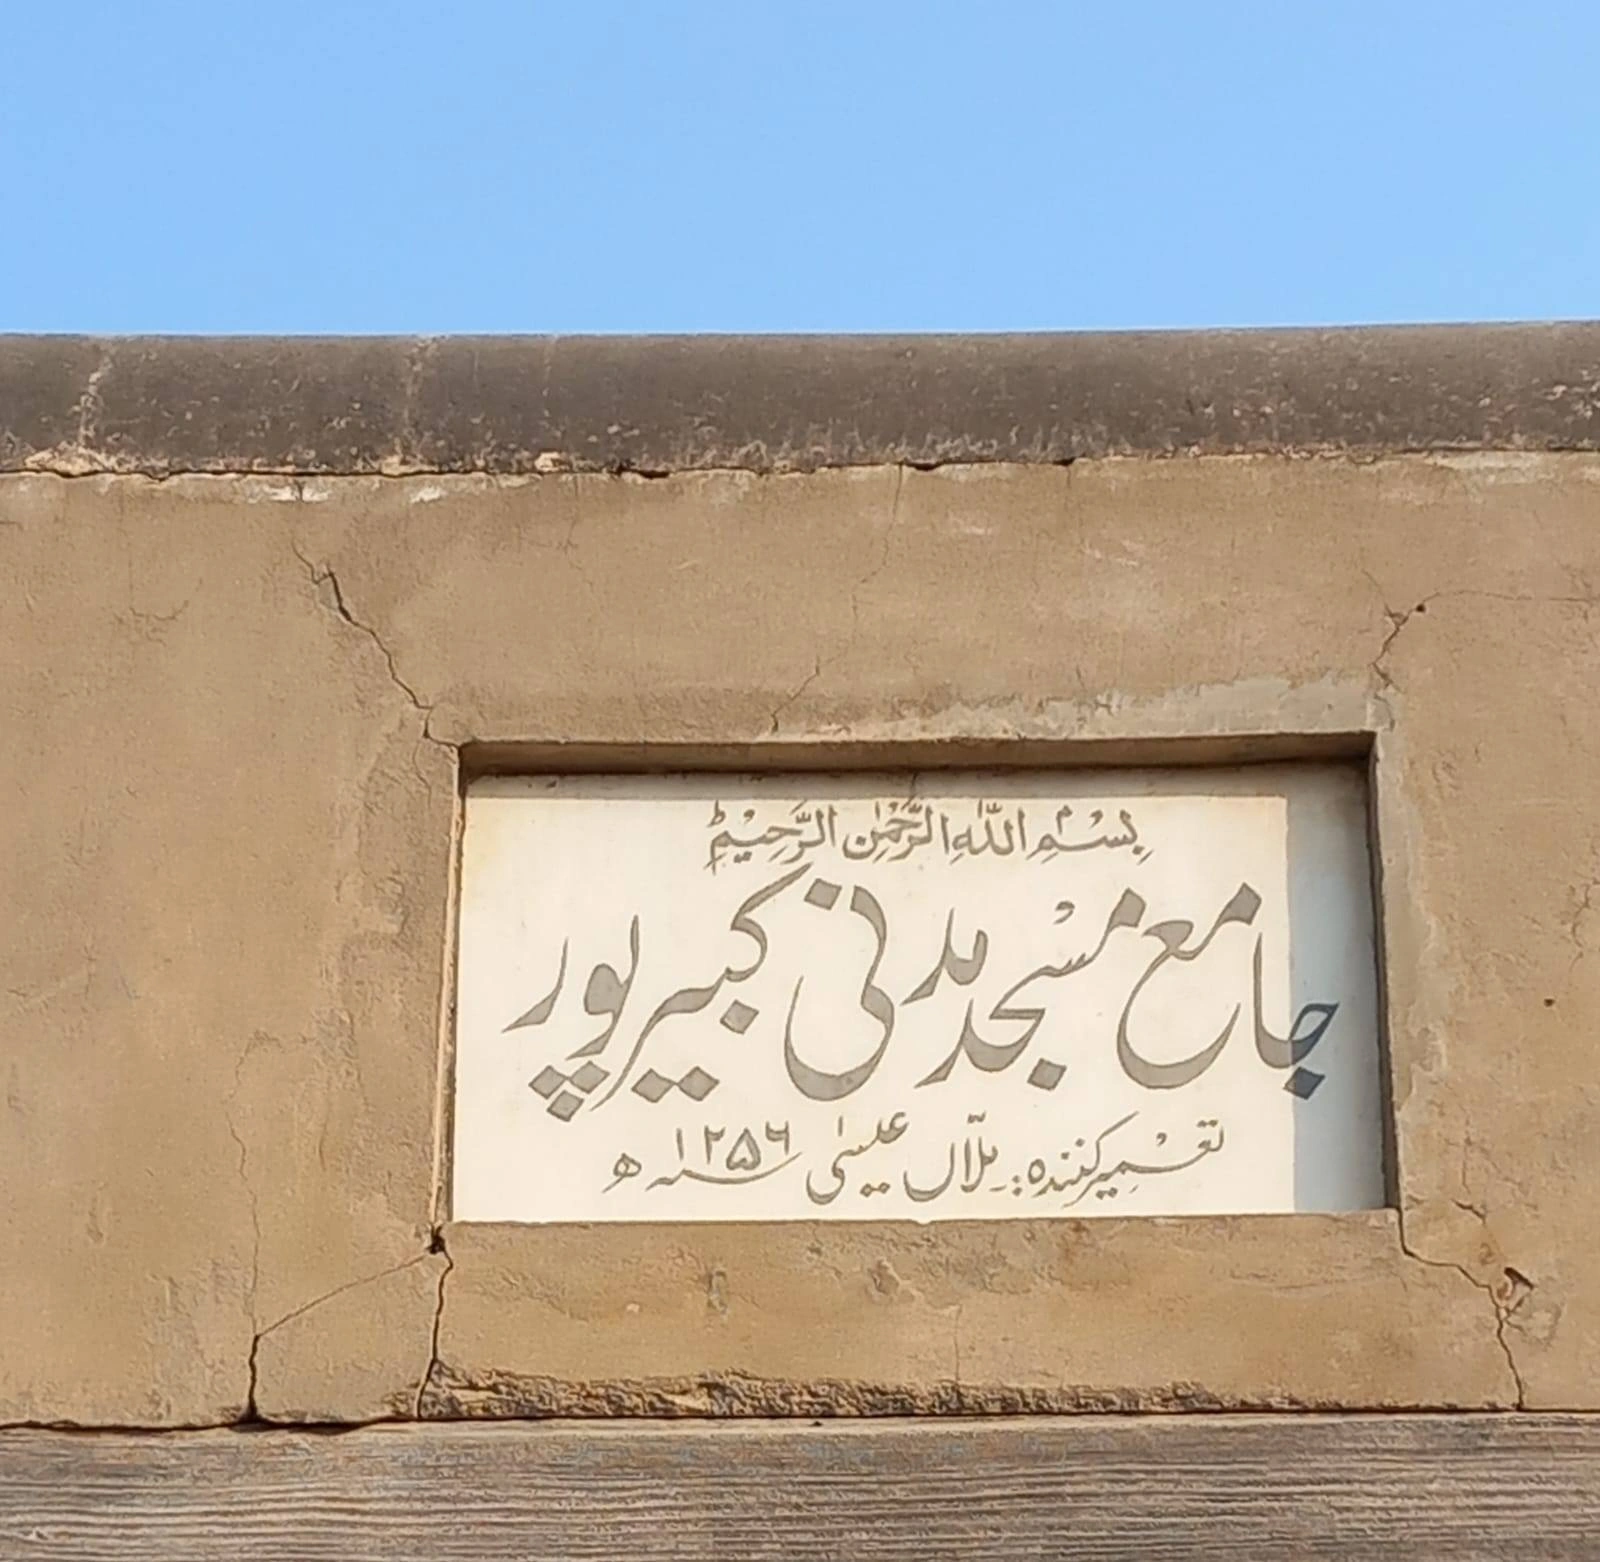 بِسْمِ اللّٰهِ الرَّحْمٰنِ الرَّحِيْمِ
جامع مسجد مدنی کبیر پور
تعمیر کنندہ: بلال عیسیٰ ۱۲۵۶ سنہ ھ